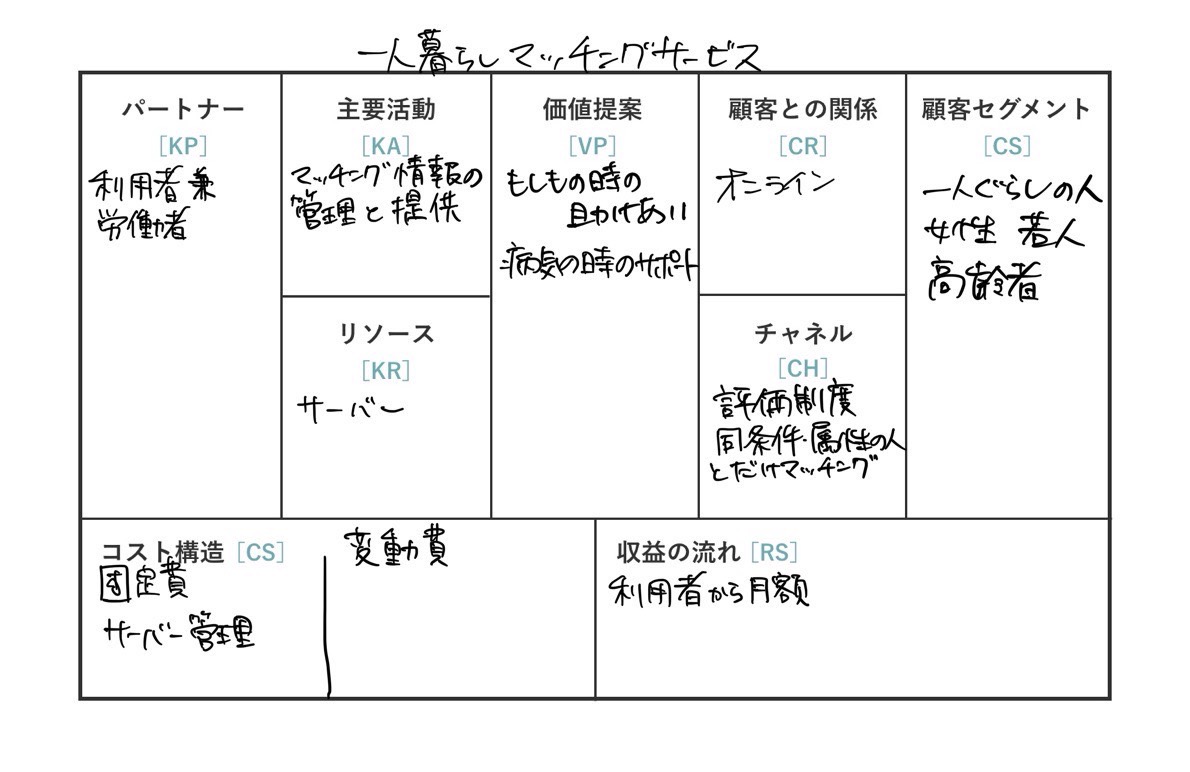 一人暮らしマッチングサービス
パートナー
[KP]
利用者兼
労働者
主要活動
[KA]
マッチング情報の
管理と提供
リソース
[KR]
サーバー
価値提案
[VP]
もしもの時の
助けあい
病気の時のサポート
顧客との関係
[CR]
オンライン
チャネル
[CH]
評価制度
同条件・属性の人
とだけマッチング
顧客セグメント
[CS]
一人ぐらしの人
女性 若人
高齢者
コスト構造 [CS]
固定費
サーバー管理
変動費
収益の流れ [RS]
利用者から月額